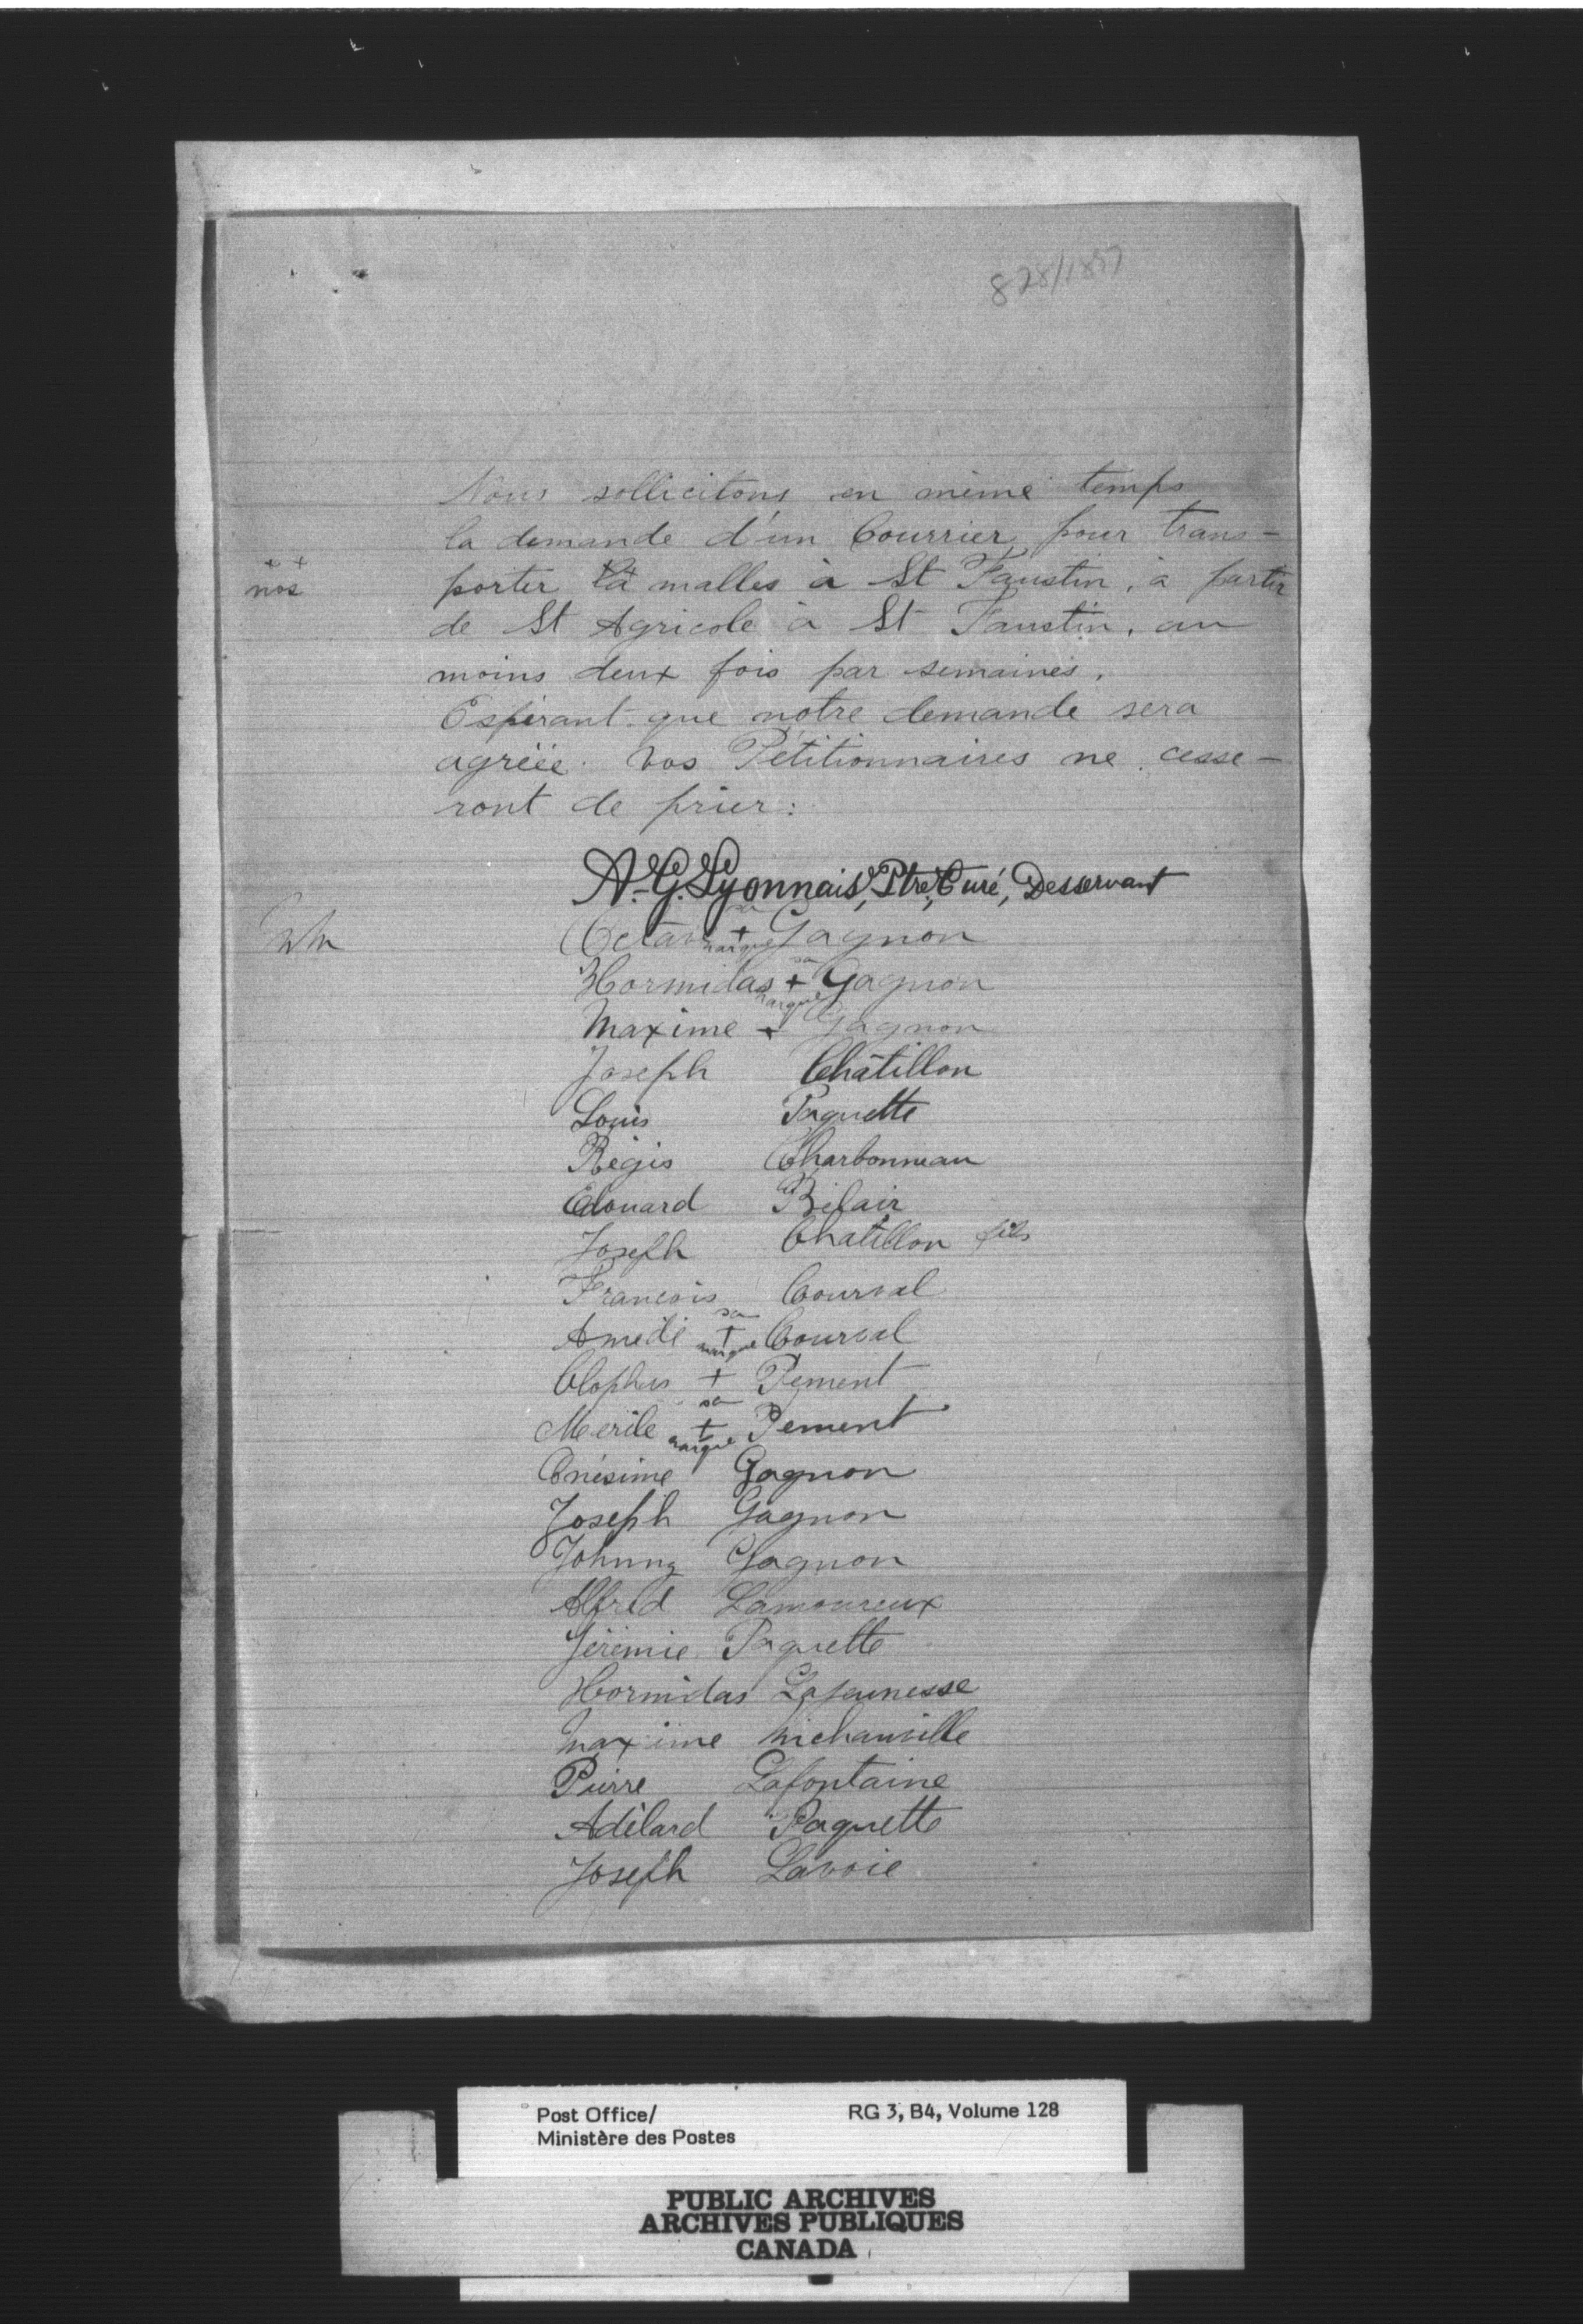 828/1897
Nous sollicitons en même temps
la demande d'un Courrier pour trans-
nos
porter la malles à St Faustin, à partir
de St Agricole à St Faustin, au
moins deux fois par semaines.
Espérant que notre demande sera
agréée. Vos Pétitionnaires ne cesse-
ront de prier:
A. G. Lyonnais, Ptre, Curé, Desservant
Octave sa + marque Gagnon
Hormidas sa + marque Gagnon
Maxime + Gagnon
Joseph Châtillon
Louis Paquette
Régis Charbonneau
Edouard Bélair
Joseph Chatillon fils
Francois Courval
Amedé sa + marque Courval
Clophus + Pement
Merile sa + marque Pement
Onésime Gagnon
Joseph Gagnon
Johnny Gagnon
Alfred Lamoureux
Jérémie Paquette
Hormidas Lajeunesse
Maxime Michauville
Pierre Lafontaine
Adélard Paquette
Joseph Lavoie
Post Office/
Ministère des Postes
RG 3, B4, Volume 128
PUBLIC ARCHIVES
ARCHIVES PUBLIQUES
CANADA